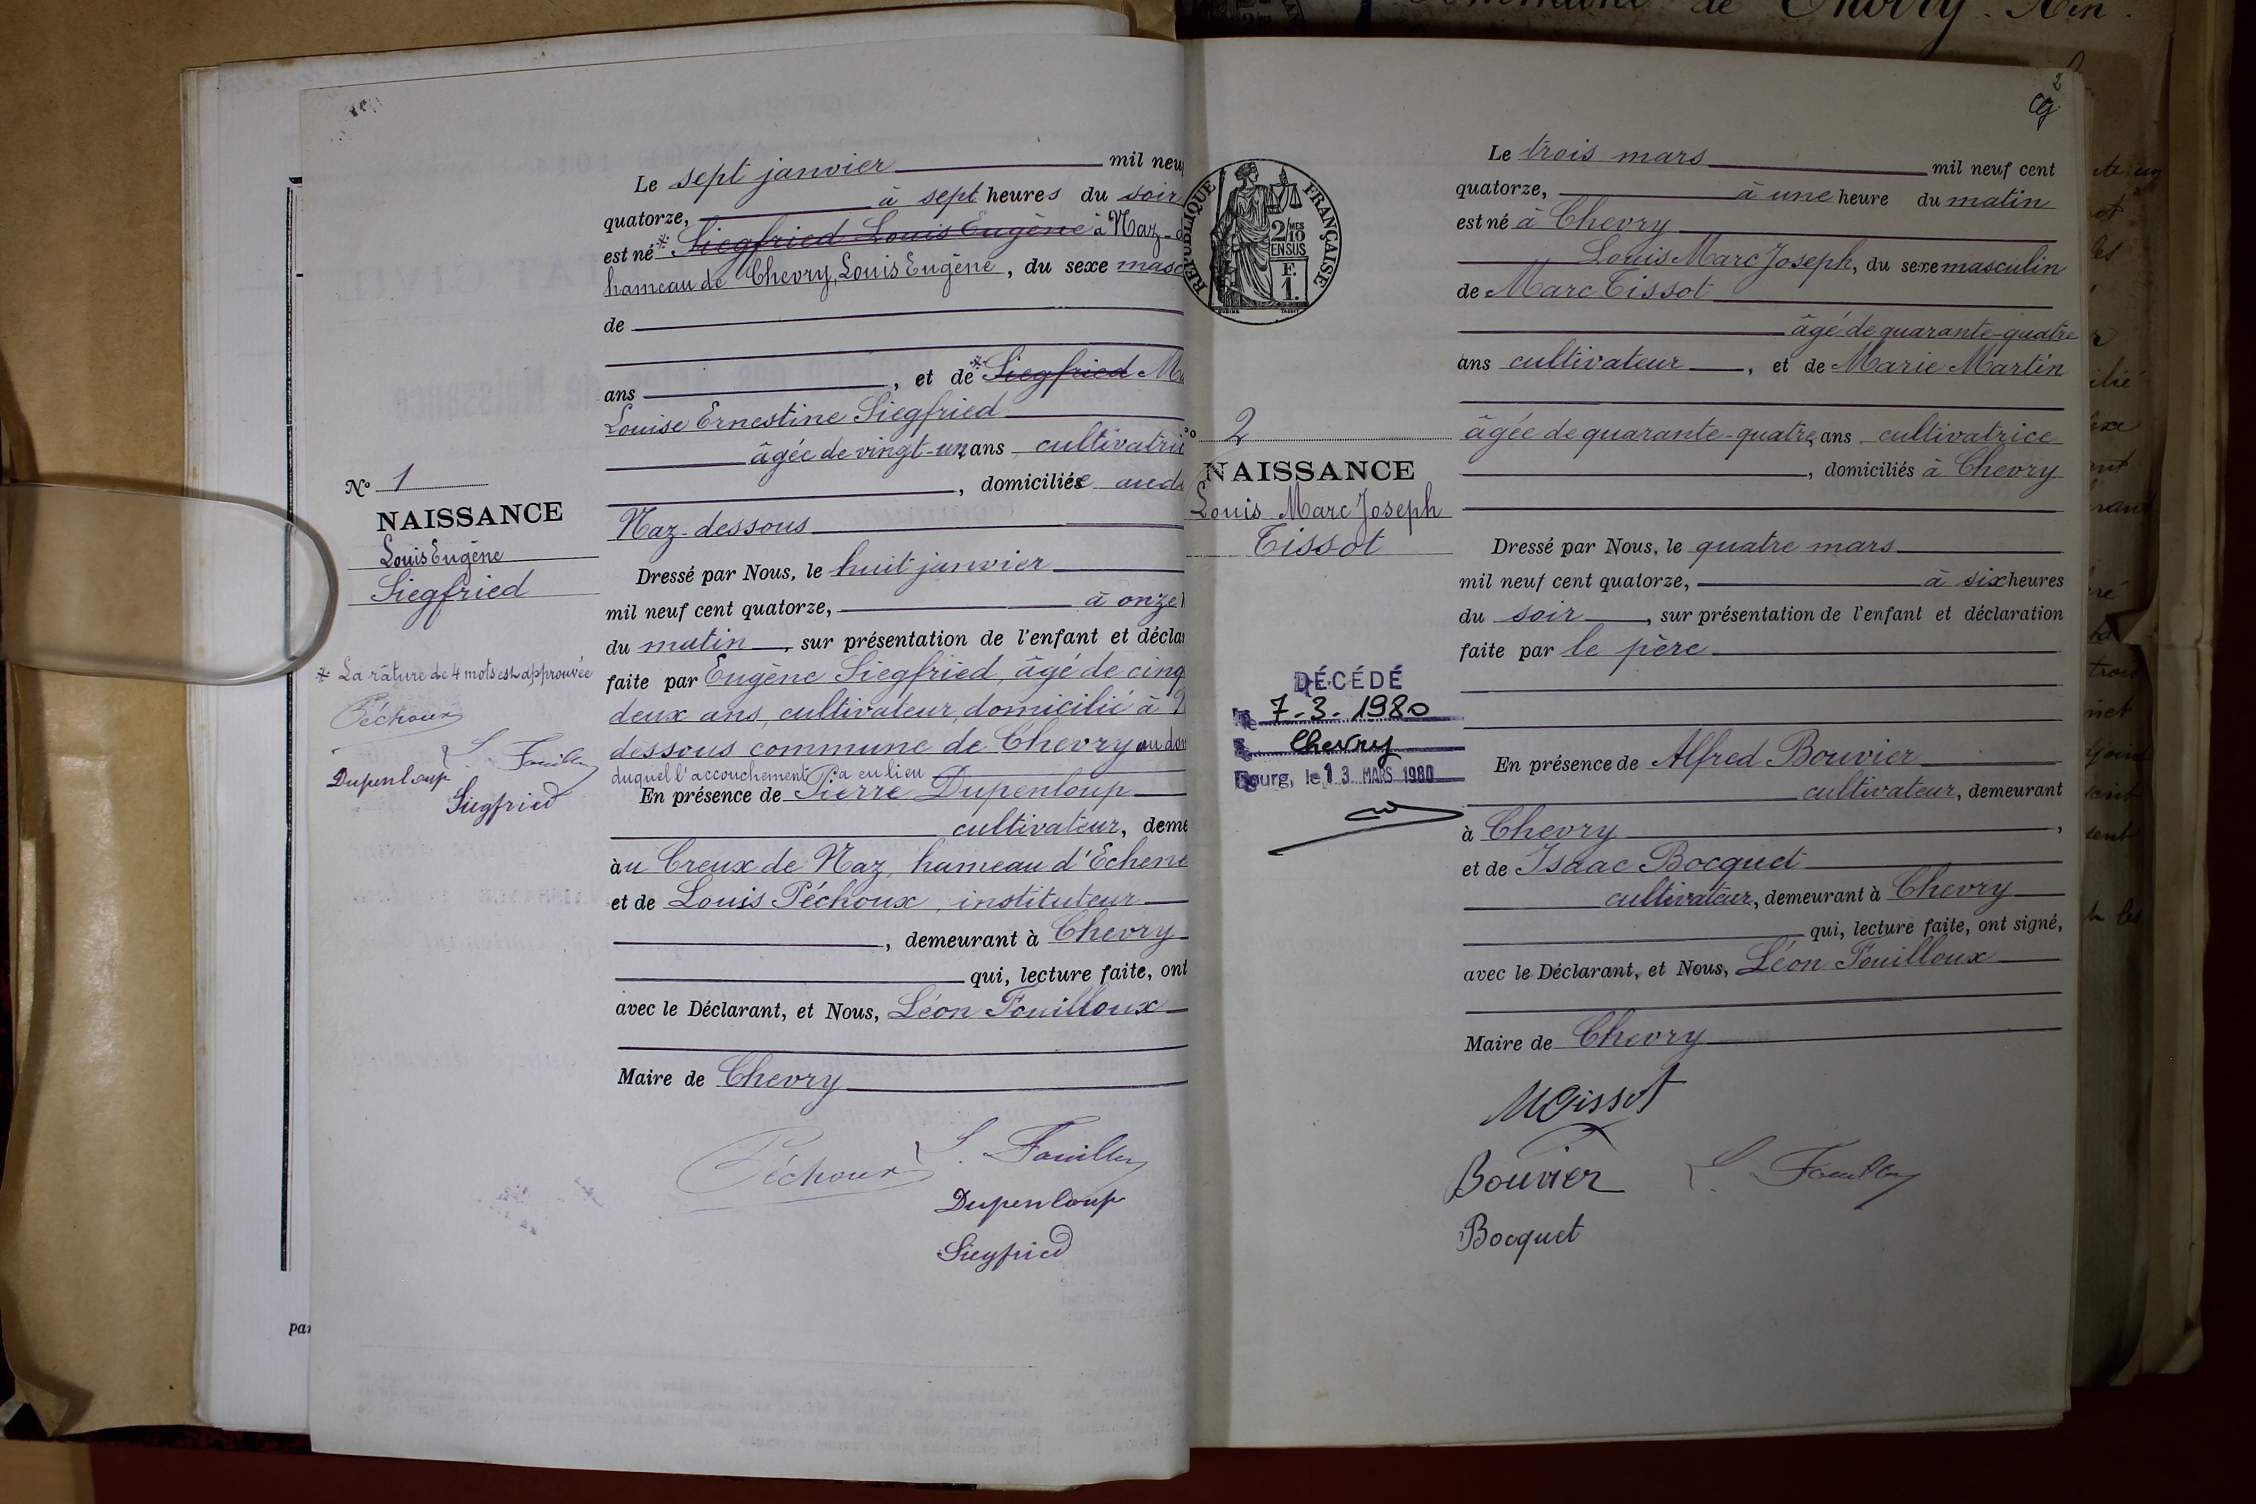 Commune de Chevry. Ain.
Le sept janvier mil neu
quatorze, à sept heures du soir
est né * Siegfried Louis Eugène à Naz-
hameau de Chevry, Louis Eugène, du sexe masc
de
ans , et de * Siegfried
Louise Ernestine Siegfried
âgée de vingt-un, ans cultivatri
, domiciliée
Naz-dessous
Dressé par Nous, le huit janvier
mil neuf cent quatorze, à onze
du matin, sur présentation de l'enfant et décla
faite par Eugène Siegfried, âgé de cinq
deux ans, cultivateur, domicilié à
dessous commune de Chevry au
duquel l'accouchement a eu lieu
En présence de Pierre Dupenloup
cultivateur, deme
au Creux de Naz, hameau d'Echene
et de Louis Péchoux, instituteur
, demeurant à Chevry
qui, lecture faite, ont
avec le Déclarant, et Nous, Léon Fouilloux
Maire de Chevry
Péchoux L. Fouilloux
Dupenloup
Siegfried
N° 1
NAISSANCE
Louis Eugène
Siegfried
* La râture de 4 mots est approuvée
Péchoux
L. Fouilloux
Dupenloup
Siegfried
par
2
RÉPUBLIQUE FRANÇAISE
2/10 MES
EN SUS
F.
1.
Le trois mars mil neuf cent
quatorze, à une heure du matin
est né à Chevry
Louis Marc Joseph, du sexe masculin
de Marc Tissot
âgé de quarante-quatre
ans cultivateur, et de Marie Martin
âgée de quarante-quatre, ans cultivatrice
, domiciliés à Chevry
Dressé par Nous, le quatre mars
mil neuf cent quatorze, à six heures
du soir, sur présentation de l'enfant et déclaration
faite par le père
En présence de Alfred Bouvier
cultivateur, demeurant
à Chevry,
et de Isaac Bocquet
cultivateur, demeurant à Chevry
qui, lecture faite, ont signé,
avec le Déclarant, et Nous, Léon Fouilloux
Maire de Chevry
MTissot
Bouvier L. Fouilloux
Bocquet
2
NAISSANCE
Louis Marc Joseph
Tissot
DÉCÉDÉ
7-3-1980
Chevry
Bourg, le 13 MARS 1980